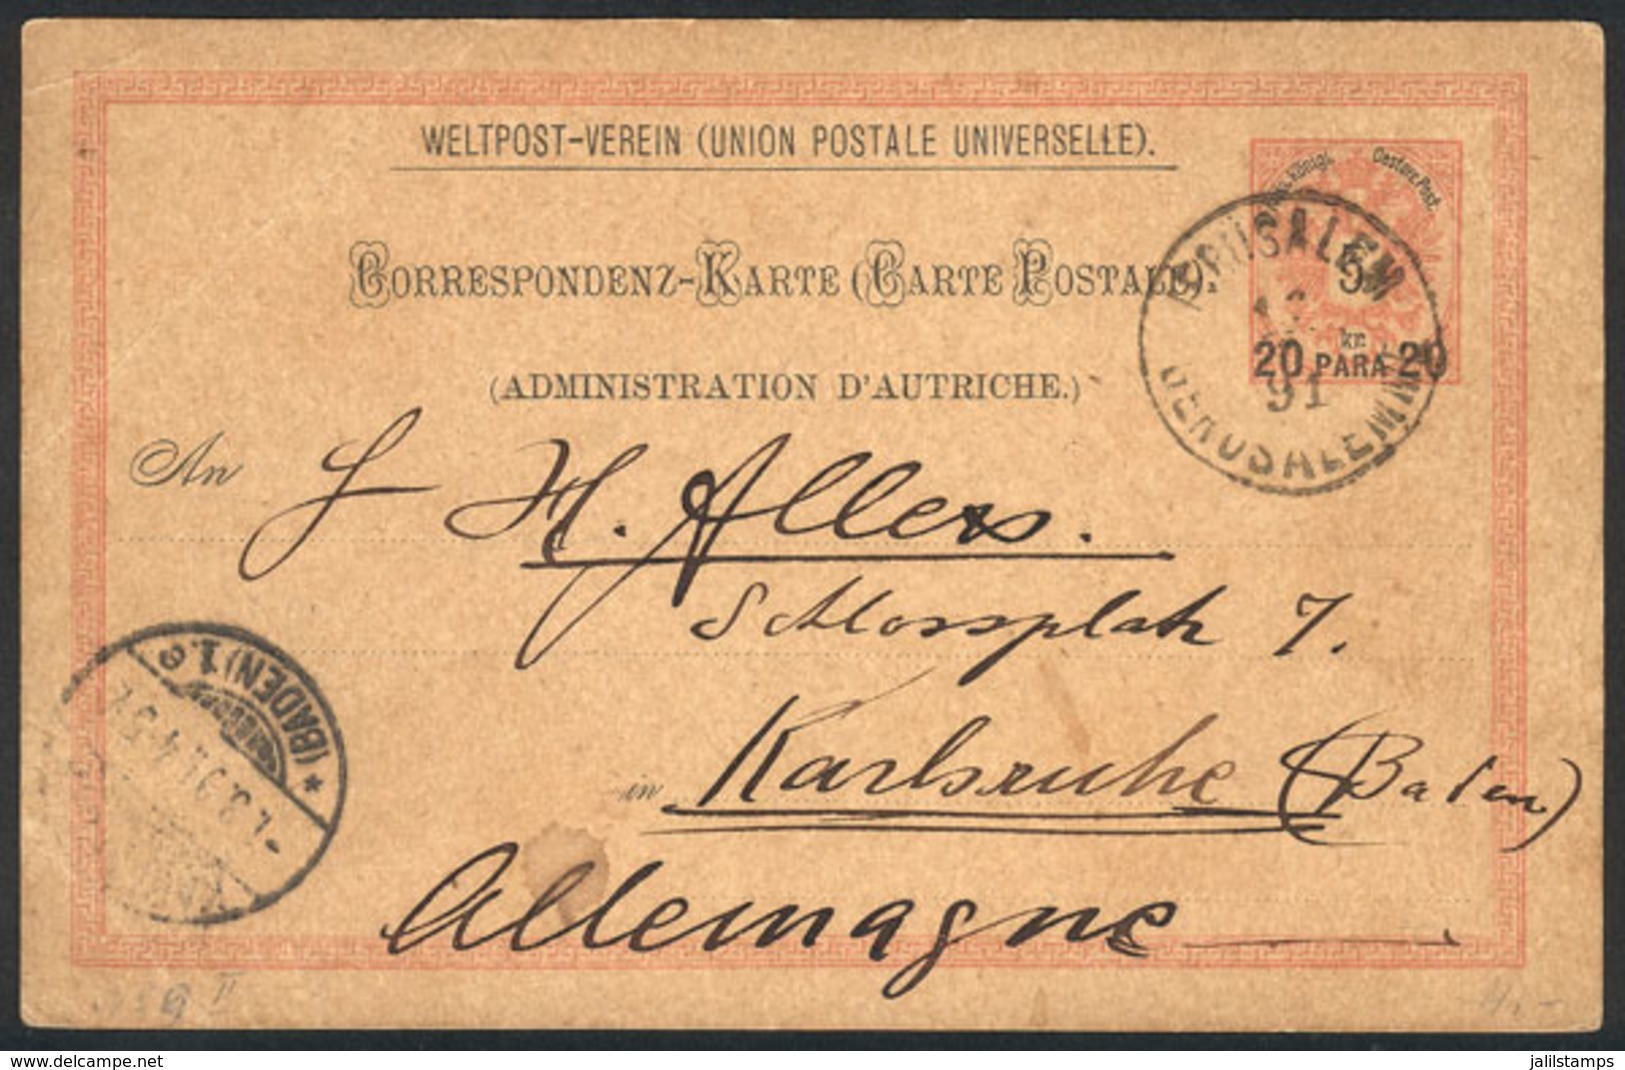 WELTPOST-VEREIN (UNION POSTALE UNIVERSELLE).
Kais. Königl. Oesterr. Post.
CORRESPONDENZ-KARTE (CARTE POSTALE).
5
kr.
20 PARA 20
JERUSALEM
91
(ADMINISTRATION D'AUTRICHE.)
An H. Allers.
Schlossplatz 7.
in Karlsruhe (Baden)
Allemagne
(BADEN) 1. e
1.3.91.4-5
delcampe.net
jalilstamps